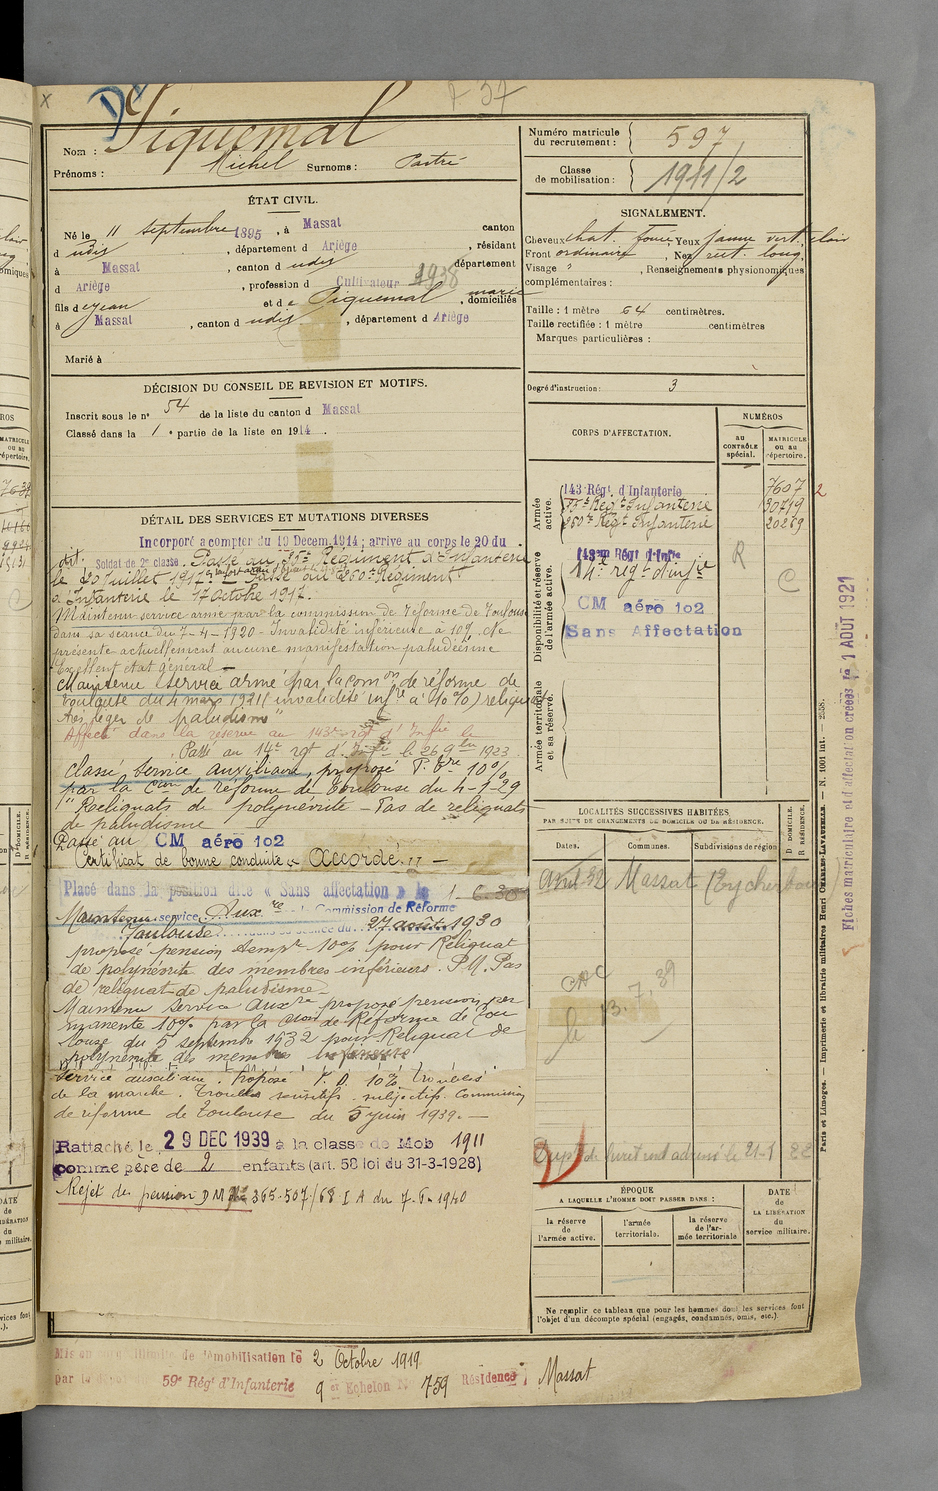 F 37
Nom : Piquemal
Prénoms : Michel Surnoms : Partré
Numéro matricule du recrutement : 597
Classe de mobilisation : 1911/2
ÉTAT CIVIL.
Né le 11 septembre 1895, à Massat canton
d udis, département d Ariège, résidant
à Massat, canton d udis département
d Ariège, profession d Cultivateur 1938
fils de Jean et de Piquemal marie, domiciliés
à Massat, canton d udis, département d Ariège
Marié à
SIGNALEMENT.
Cheveux chat. foncé Yeux jaune vert clair
Front ordinaire, Nez rect. long
Visage " , Renseignements physionomiques
complémentaires :
Taille : 1 mètre 64 centimètres.
Taille rectifiée : 1 mètre centimètres
Marques particulières :
Degré d'instruction : 3
DÉCISION DU CONSEIL DE REVISION ET MOTIFS.
Inscrit sous le n° 54 de la liste du canton d Massat
Classé dans la 1e partie de la liste en 1914.
DÉTAIL DES SERVICES ET MUTATIONS DIVERSES
Incorporé a compter du 19 Décem. 1914 ; arrive au corps le 20 du
dit. Soldat de 2e classe. Passé au 96e Régiment d'Infanterie
le 20 Juillet 1917. Passé au 260e Régiment
d'Infanterie le 17 Octobre 1917.
Maintenu service armé par la commission de réforme de Toulouse
dans sa séance du 7-4-1920 - Invalidité inférieure à 10%. Ne
présente actuellement aucune manifestation paludéenne
Excellent état général -
Maintenu service armé par la com on de réforme de
Toulouse du 4 mars 1921 (invalidité infre à 10%) reliquat
très léger de paludisme"
Affecté dans la réserve au 143e rgt d'Infie le
Passé au 14e rgt d'Infie le 26 9bre 1923
Classé Service Auxiliaire, proposé P. Tre 10%
par la Cion de réforme de Toulouse du 4-1-29
"Reliquats de polynévrite - Pas de reliquats
de paludisme
Passé au CM aéro 102
Certificat de bonne conduite "Accordé"
Placé dans la position dite « Sans affectation » le 1-6-30
Maintenu service Auxre Commission de Réforme
Toulouse séance du 27 août 1930
proposé pension tempre 10% pour Reliquat
de polynévrite des membres inférieurs. P.M. Pas
de reliquat de paludisme.
Maintenu Service Auxre proposé pension per
manente 10% par la Cion de Réforme de Tou
louse du 5 septembre 1932 pour Reliquat de
polynévrite des membres inférieurs
Service auxiliaire. Proposé P. D. 10% troubles
de la marche. Troubles sensitifs subjectifs. Commission
de réforme de Toulouse du 5 juin 1939. -
Rattaché le 29 DEC 1939 à la classe de Mob 1911
comme père de 2 enfants (art. 58 loi du 31-3-1928)
Rejet de pension D M 365-507/68 I A du 7-6-1940
CORPS D'AFFECTATION.
NUMÉROS
au CONTRÔLE spécial.
MATRICULE ou au répertoire.
Armée active.
143 Régt d'Infanterie 7607
96e Régt Infanterie 30719
260e Régt Infanterie 20269
Disponibilité et réserve de l'armée active.
143eme Régt d'Infie
14e régt d'infie
CM aéro 102
Sans Affectation
R
C
Armée territoriale et sa réserve.
LOCALITÉS SUCCESSIVES HABITÉES.
PAR SUITE DE CHANGEMENTS DE DOMICILE OU DE RÉSIDENCE.
Dates. Communes. Subdivisions de région
D. DOMICILE. R. RÉSIDENCE.
Avril 32 Massat (Eycherboul)
CRC
le 13.7.39
ÉPOQUE
A LAQUELLE L'HOMME DOIT PASSER DANS :
la réserve de l'armée active.
l'armée territoriale.
la réserve de l'armée territoriale
DATE de LA LIBÉRATION du service militaire.
Ne remplir ce tableau que pour les hommes dont les services font
l'objet d'un décompte spécial (engagés, condamnés, omis, etc.).
Mis en congé illimité de démobilisation le 2 Octobre 1919
par le dépôt du 59e Régt d'Infanterie 9 e Echelon N° 759 Résidence : Massat
Fiches matriculaire et d'affectation créées le 1 AOUT 1921
Paris et Limoges. — Imprimerie et librairie militaires Henri CHARLES-LAVAUZELLE. — N. 1001 int. — 2538.